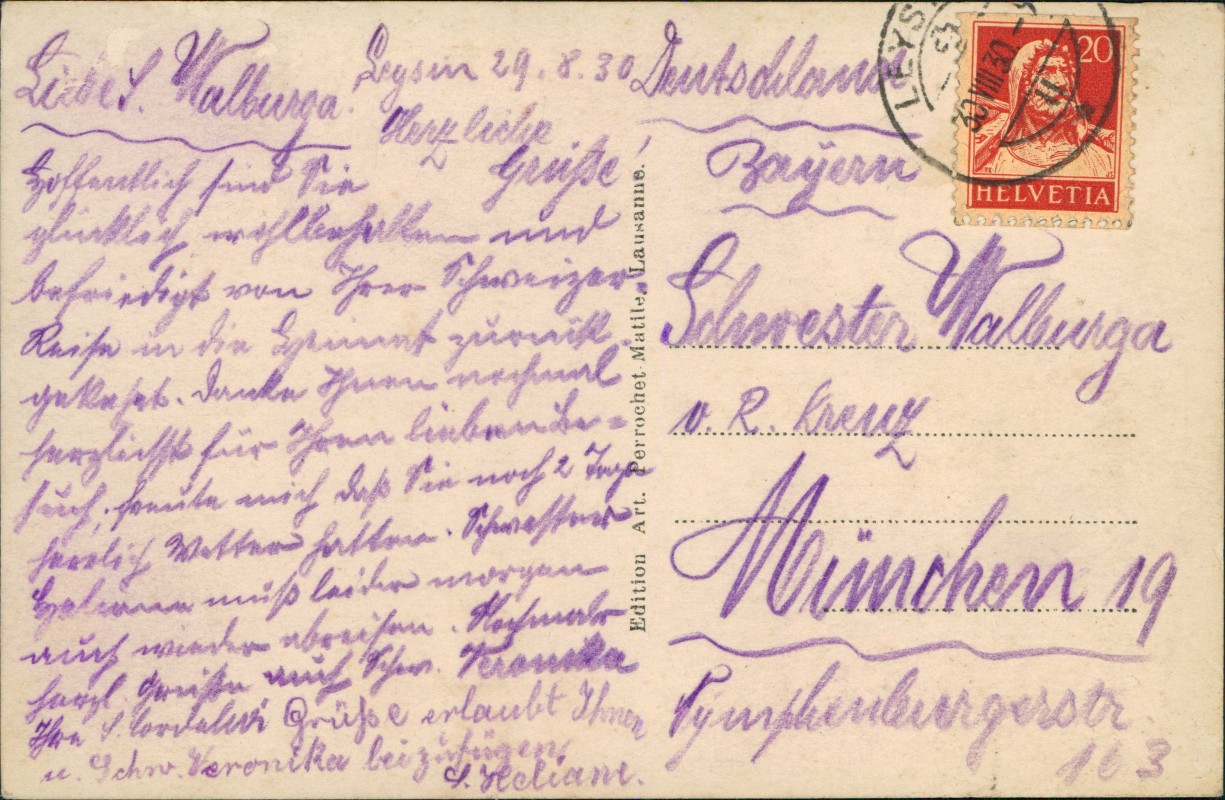 Leysin 29.8.30
Liebe S. Walburga.
Herzliche
Grüße!
Hoffentlich sind Sie
glücklich, wohlbehalten und
befriedigt von Ihrer Schweizer
Reise in die Heimat zurück
gekehrt. Danke Ihnen nochmal
herzlichst für Ihren lieben Be=
such, freute mich daß Sie noch 2 Tage
herrlich Wetter hatten. Schwester
Heliana muß leider morgen
auch wieder abreisen. Nochmals
herzl. Grüße auch Schw. Veronika
Ihre S.
Grüße erlaubt Ihnen
u. Schw. Veronika beizufügen
S. Heliane.
Edition Art. Perrochet-Matile, Lausanne.
Deutschland
Bayern
Schwester Walburga
v. R. Kreuz
München 19
Nymphenburgerstr
163
LEYS
30.VIII.30
20
HELVETIA